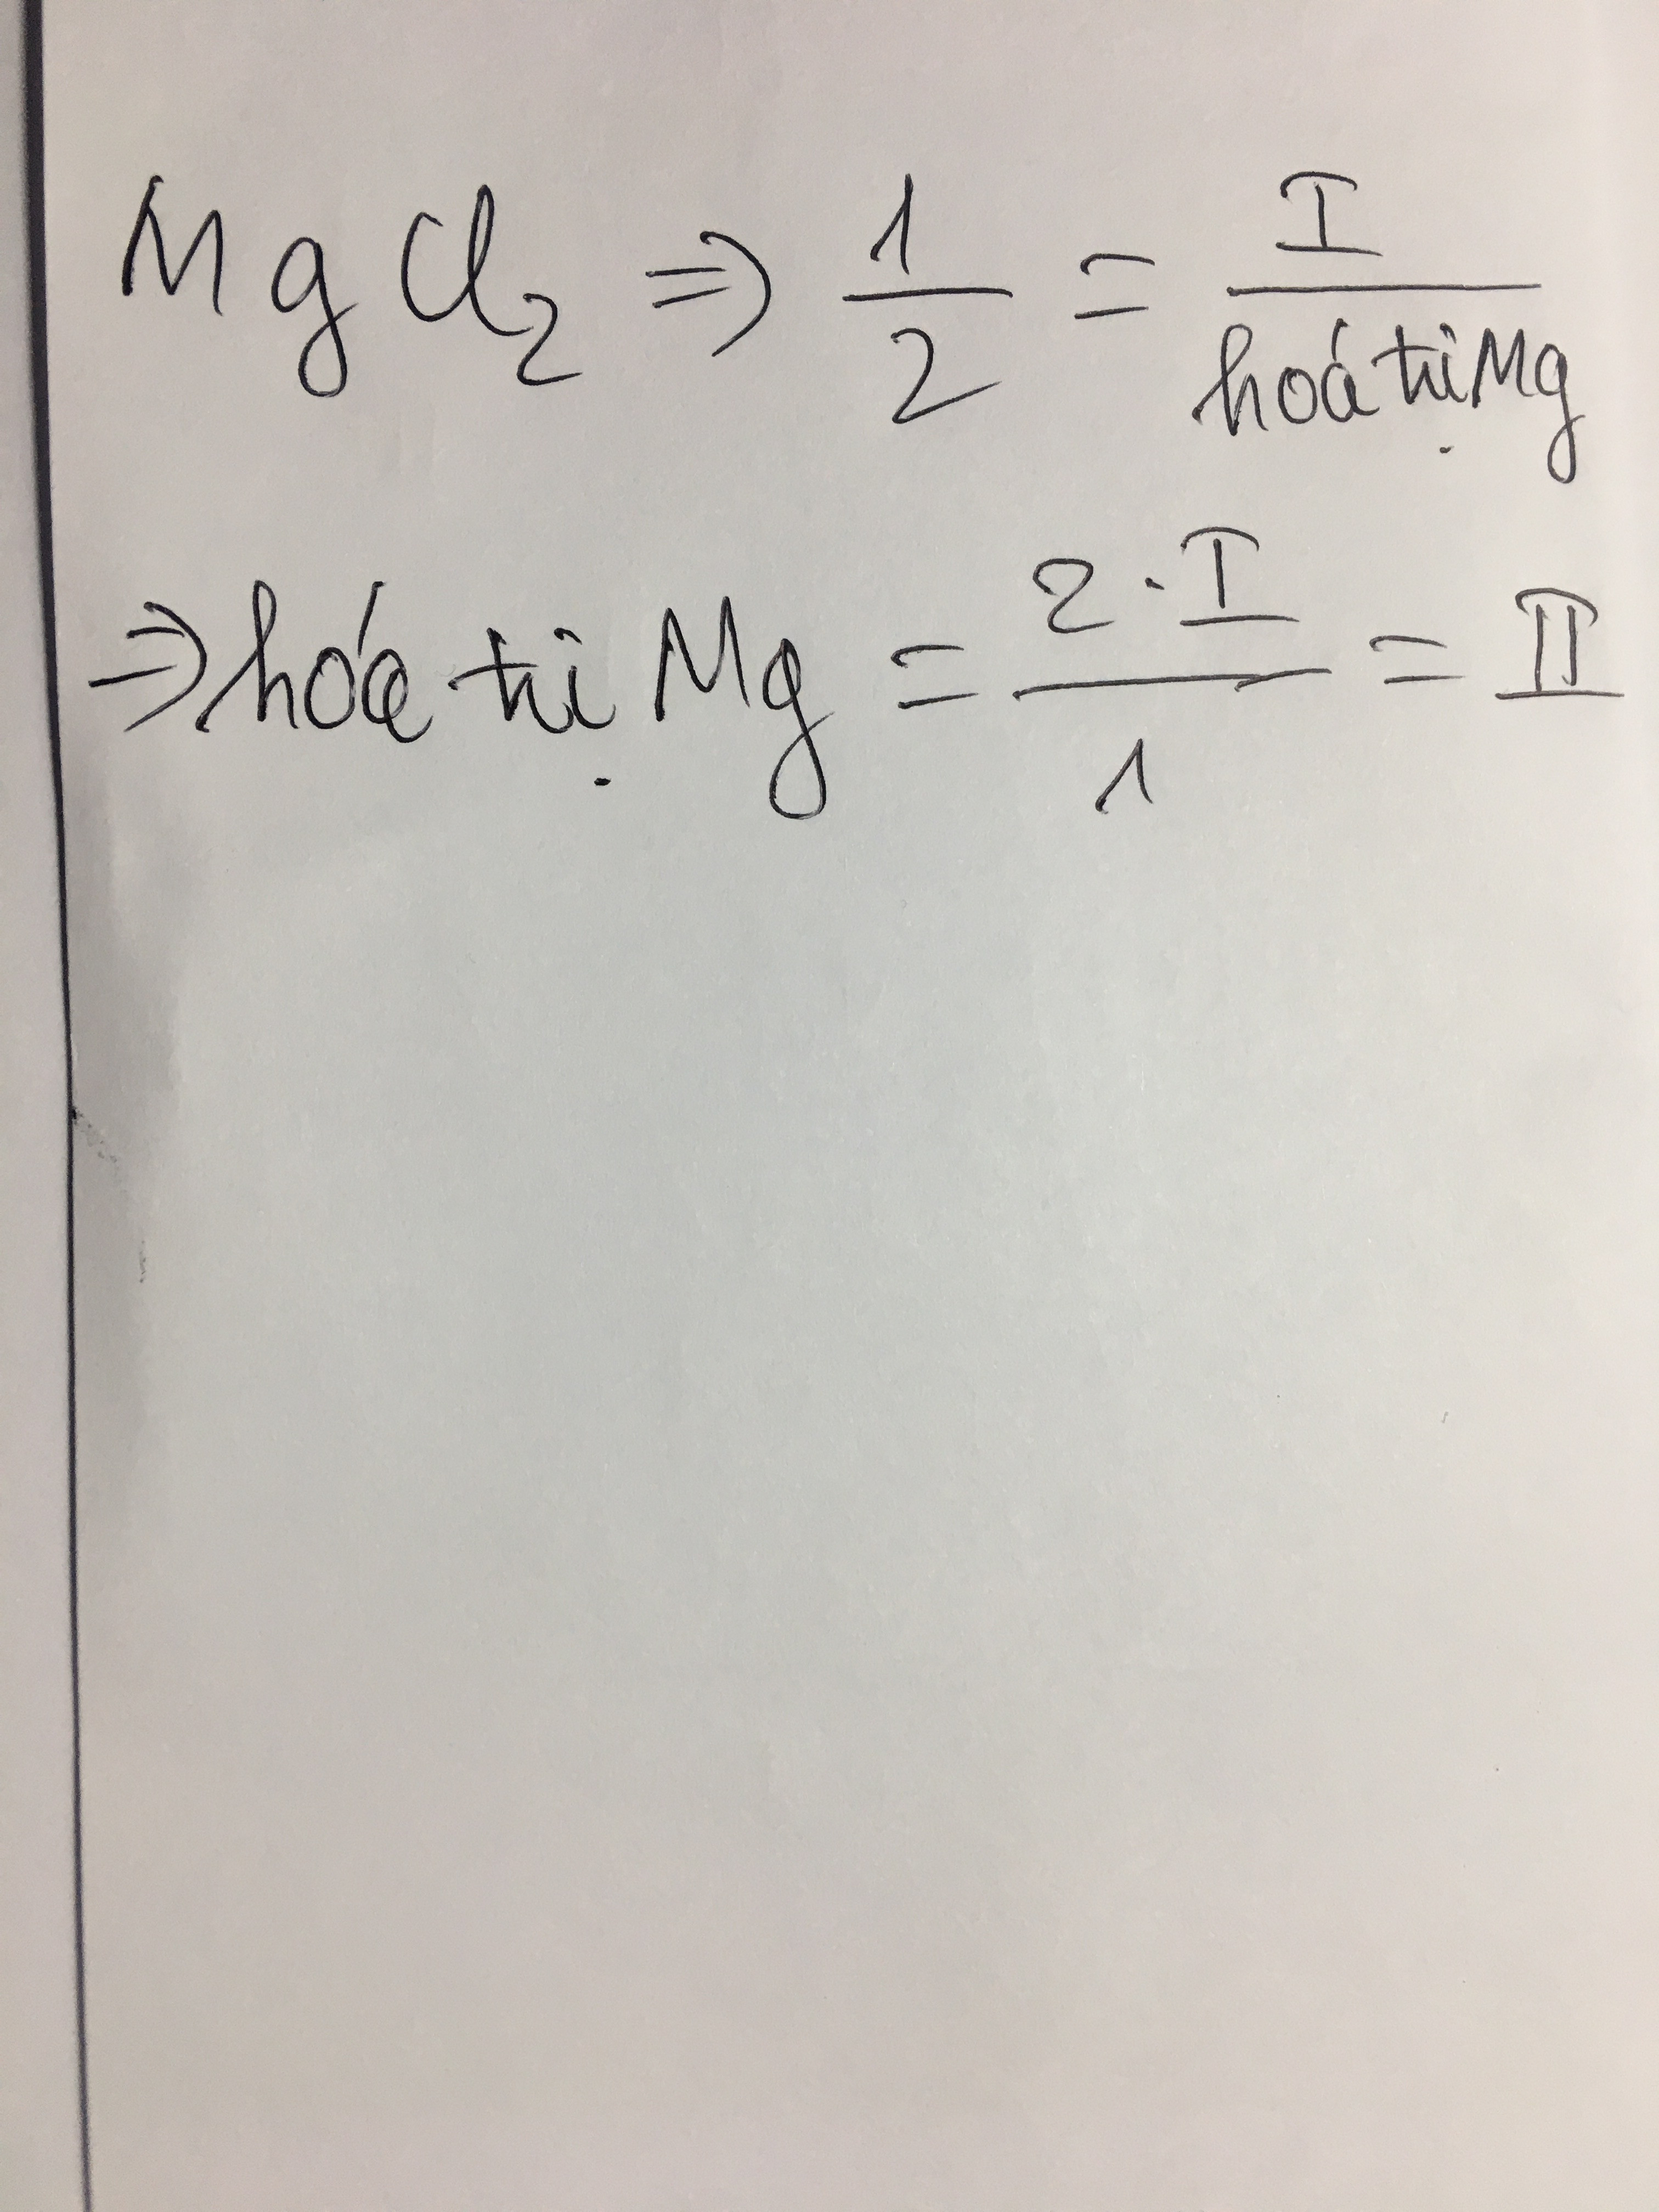 MgCl₂ => 1/2 = I/hoá trị Mg
=> hóa trị Mg = 2·I/1 = II